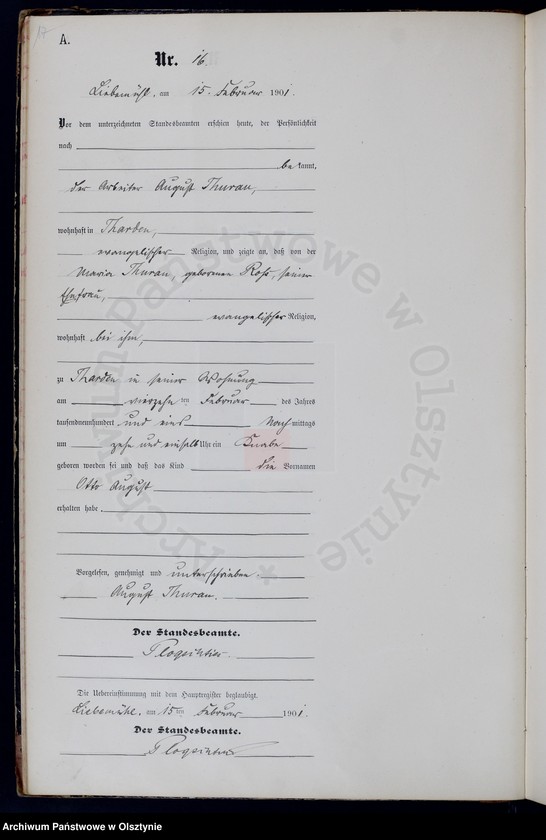 A.
Nr. 16.
Liebemühl, am 15. Februar 1901.
Vor dem unterzeichneten Standesbeamten erschien heute, der Persönlichkeit
nach
bekannt,
der Arbeiter August Thurau,
wohnhaft in Tharden,
evangelischer Religion, und zeigte an, daß von der
Maria Thurau, geborenen Rohs, seiner
Ehefrau,
evangelischer Religion,
wohnhaft bei ihm,
zu Tharden in seiner Wohnung
am vierzehn ten Februar des Jahres
tausendneunhundert und eins Nachmittags
um zehn und einhalb Uhr ein Knabe
geboren worden sei und daß das Kind die Vornamen
Otto August
erhalten habe.
Vorgelesen, genehmigt und unterschrieben.
August Thurau.
Der Standesbeamte.
Die Uebereinstimmung mit dem Hauptregister beglaubigt.
Liebemühl, am 15ten Februar 1901.
Der Standesbeamte.
Archiwum Państwowe w Olsztynie *
Archiwum Państwowe w Olsztynie